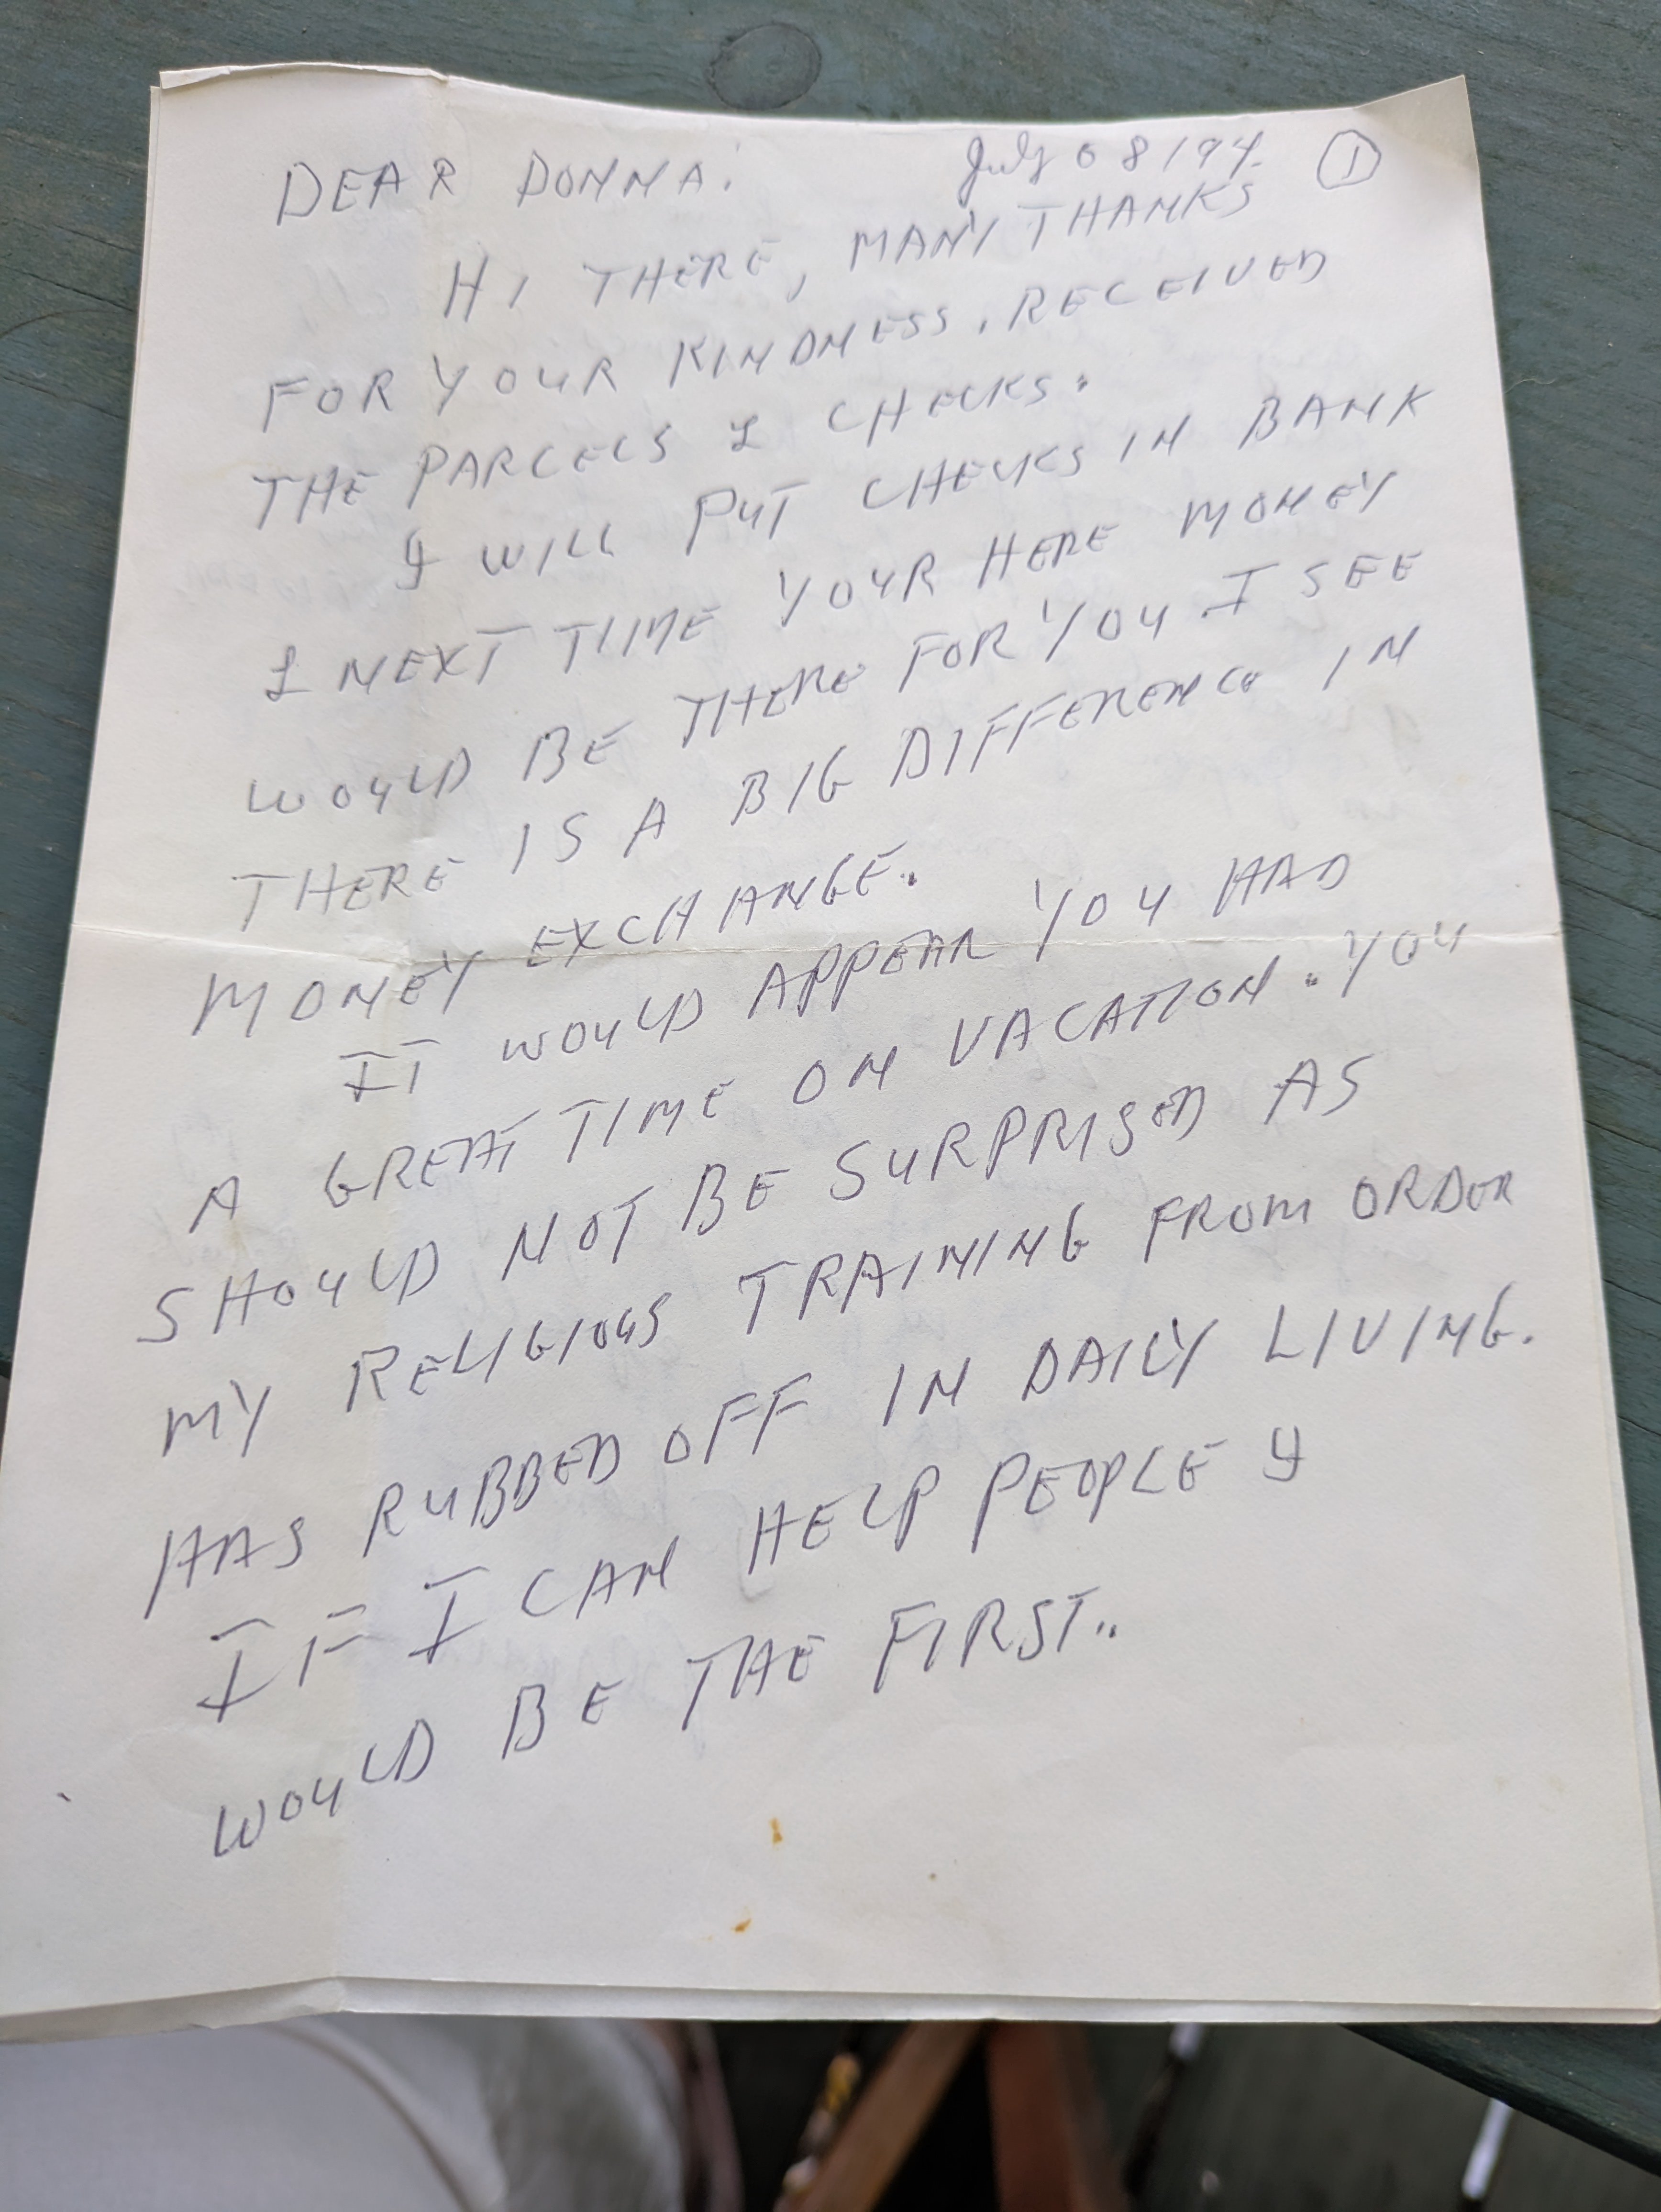 July 08/94. 1
DEAR DONNA:
HI THERE, MANY THANKS
FOR YOUR KINDNESS. RECEIVED
THE PARCELS & CHECKS.
I WILL PUT CHECKS IN BANK
& NEXT TIME YOUR HERE MONEY
WOULD BE THERE FOR YOU. I SEE
THERE IS A BIG DIFFERENCE IN
MONEY EXCHANGE.
IT WOULD APPEAR YOU HAD
A GREAT TIME ON VACATION. YOU
SHOULD NOT BE SURPRISED AS
MY RELIGIOUS TRAINING FROM ORDER
HAS RUBBED OFF IN DAILY LIVING.
IF I CAN HELP PEOPLE I
WOULD BE THE FIRST..